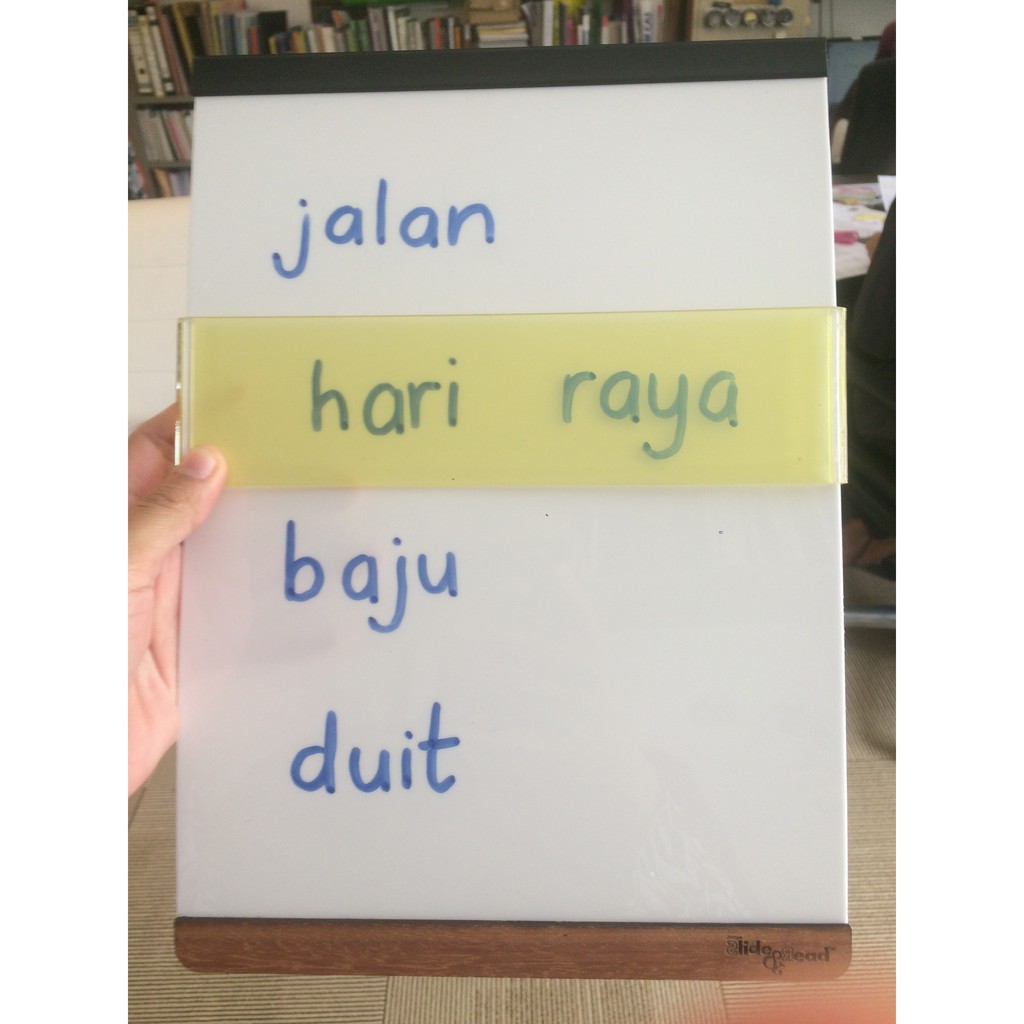 jalan
hari raya
baju
duit
Slide & Read